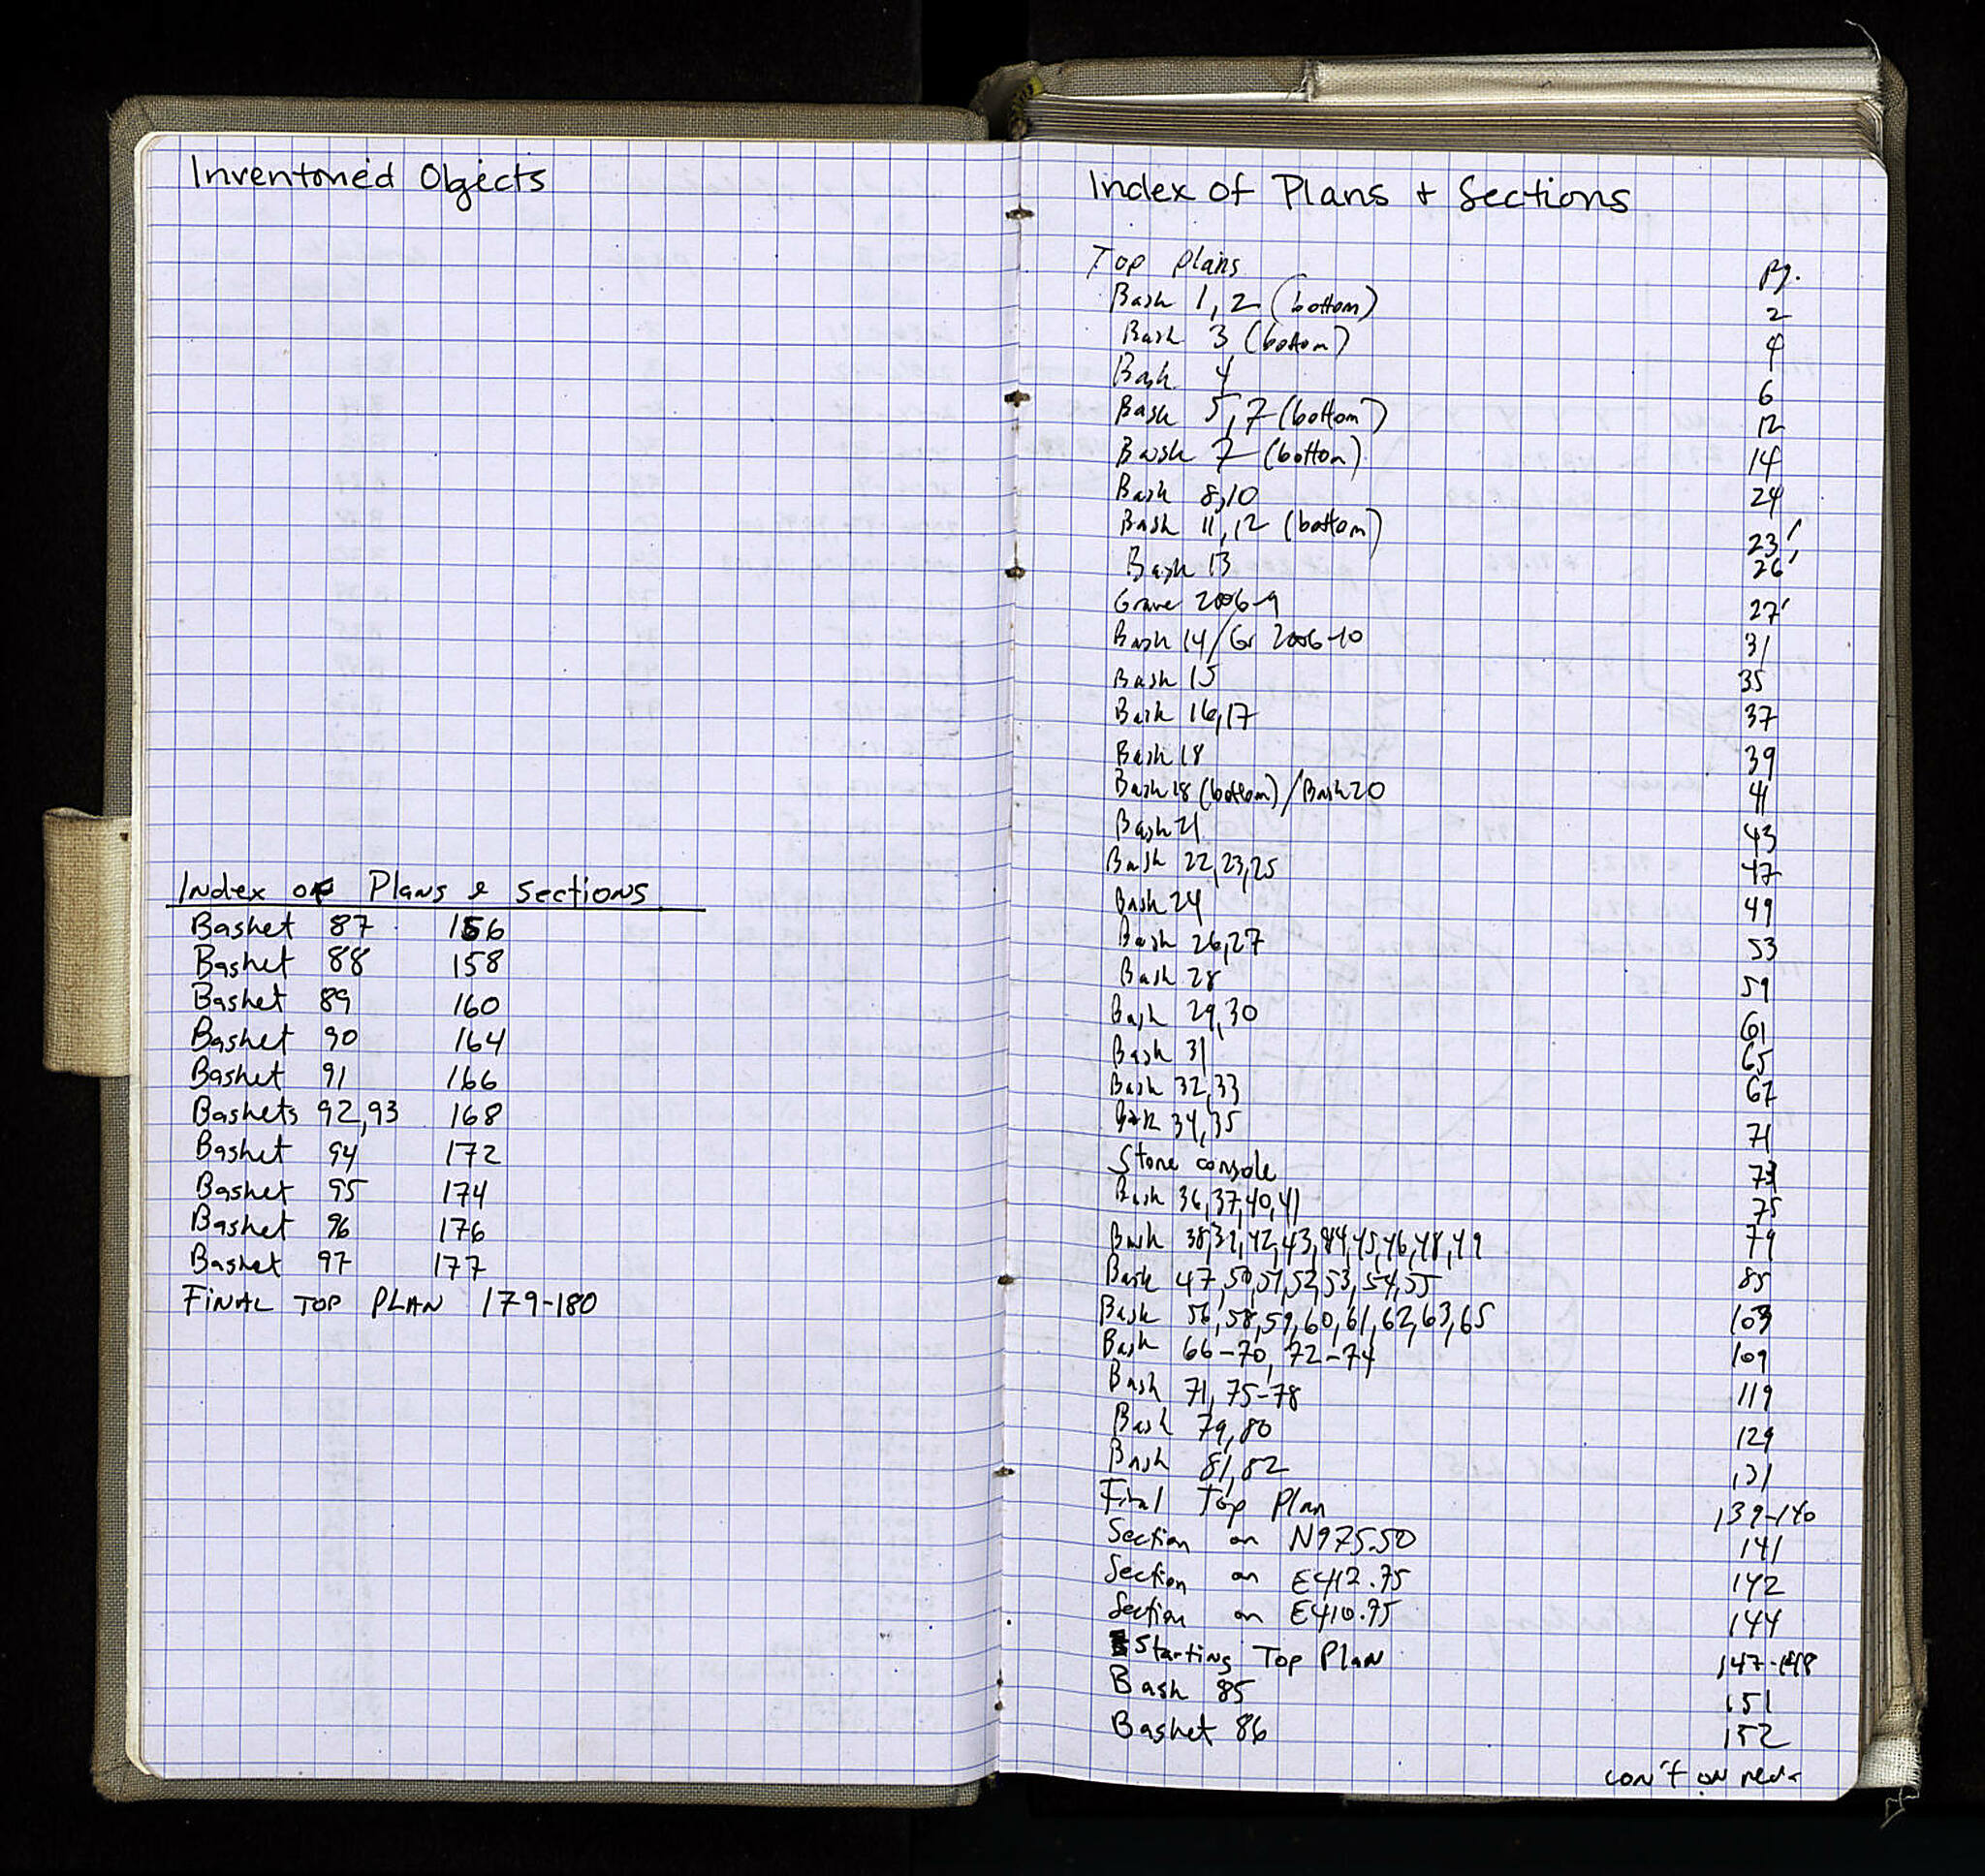 Inventoried Objects
Index of Plans & Sections
Basket 87 156
Basket 88 158
Basket 89 160
Basket 90 164
Basket 91 166
Baskets 92,93 168
Basket 94 172
Basket 95 174
Basket 96 176
Basket 97 177
FINAL TOP PLAN 179-180
Index of Plans + Sections
Top plans pg.
Bask 1,2 (bottom) 2
Bask 3 (bottom) 4
Bask 4 6
Bask 5,7 (bottom) 12
Bask 7 (bottom) 14
Bask 8,10 24
Bask 11,12 (bottom) 23'
Bask 13 26'
Grave 2006-9 27'
Bask 14/Gr 2006-10 31
Bask 15 35
Bask 16,17 37
Bask 18 39
Bask 18 (bottom)/Bask 20 41
Bask 21 43
Bask 22,23,25 47
Bask 24 49
Bask 26,27 53
Bask 28 59
Bask 29,30 61
Bask 31 65
Bask 32,33 67
Bask 34,35 71
Stone console 73
Bask 36,37,40,41 75
Bask 38,39,42,43,44,45,46,48,49 79
Bask 47,50,51,52,53,54,55 85
Bask 56,58,59,60,61,62,63,65 103
Bask 66-70, 72-74 109
Bask 71, 75-78 119
Bask 79,80 129
Bask 81,82 131
Final Top Plan 139-140
Section on N975.50 141
Section on E412.75 142
Section on E410.95 144
Starting Top Plan 147-148
Bask 85 151
Basket 86 152
con't on